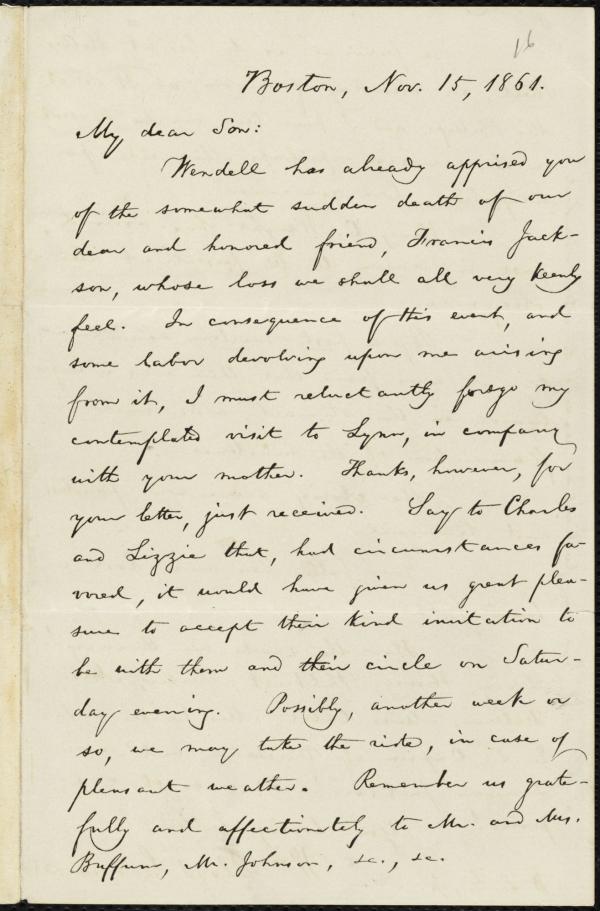 16
Boston, Nov. 15, 1861.
My dear Son:
Wendell has already apprised you
of the somewhat sudden death of our
dear and honored friend, Francis Jack-
son, whose loss we shall all very keenly
feel. In consequence of this event, and
some labor devolving upon me arising
from it, I must reluctantly forego my
contemplated visit to Lynn, in company
with your mother. Thanks, however, for
your letter, just received. Say to Charles
and Lizzie that, had circumstances fa-
vored, it would have given us great plea-
sure to accept their kind invitation to
be with them and their circle on Satur-
day evening. Possibly, another week or
so, we may take the ride, in case of
pleasant weather. Remember us grate-
fully and affectionately to Mr. and Mrs.
Buffum, Mr. Johnson, &c., &c.